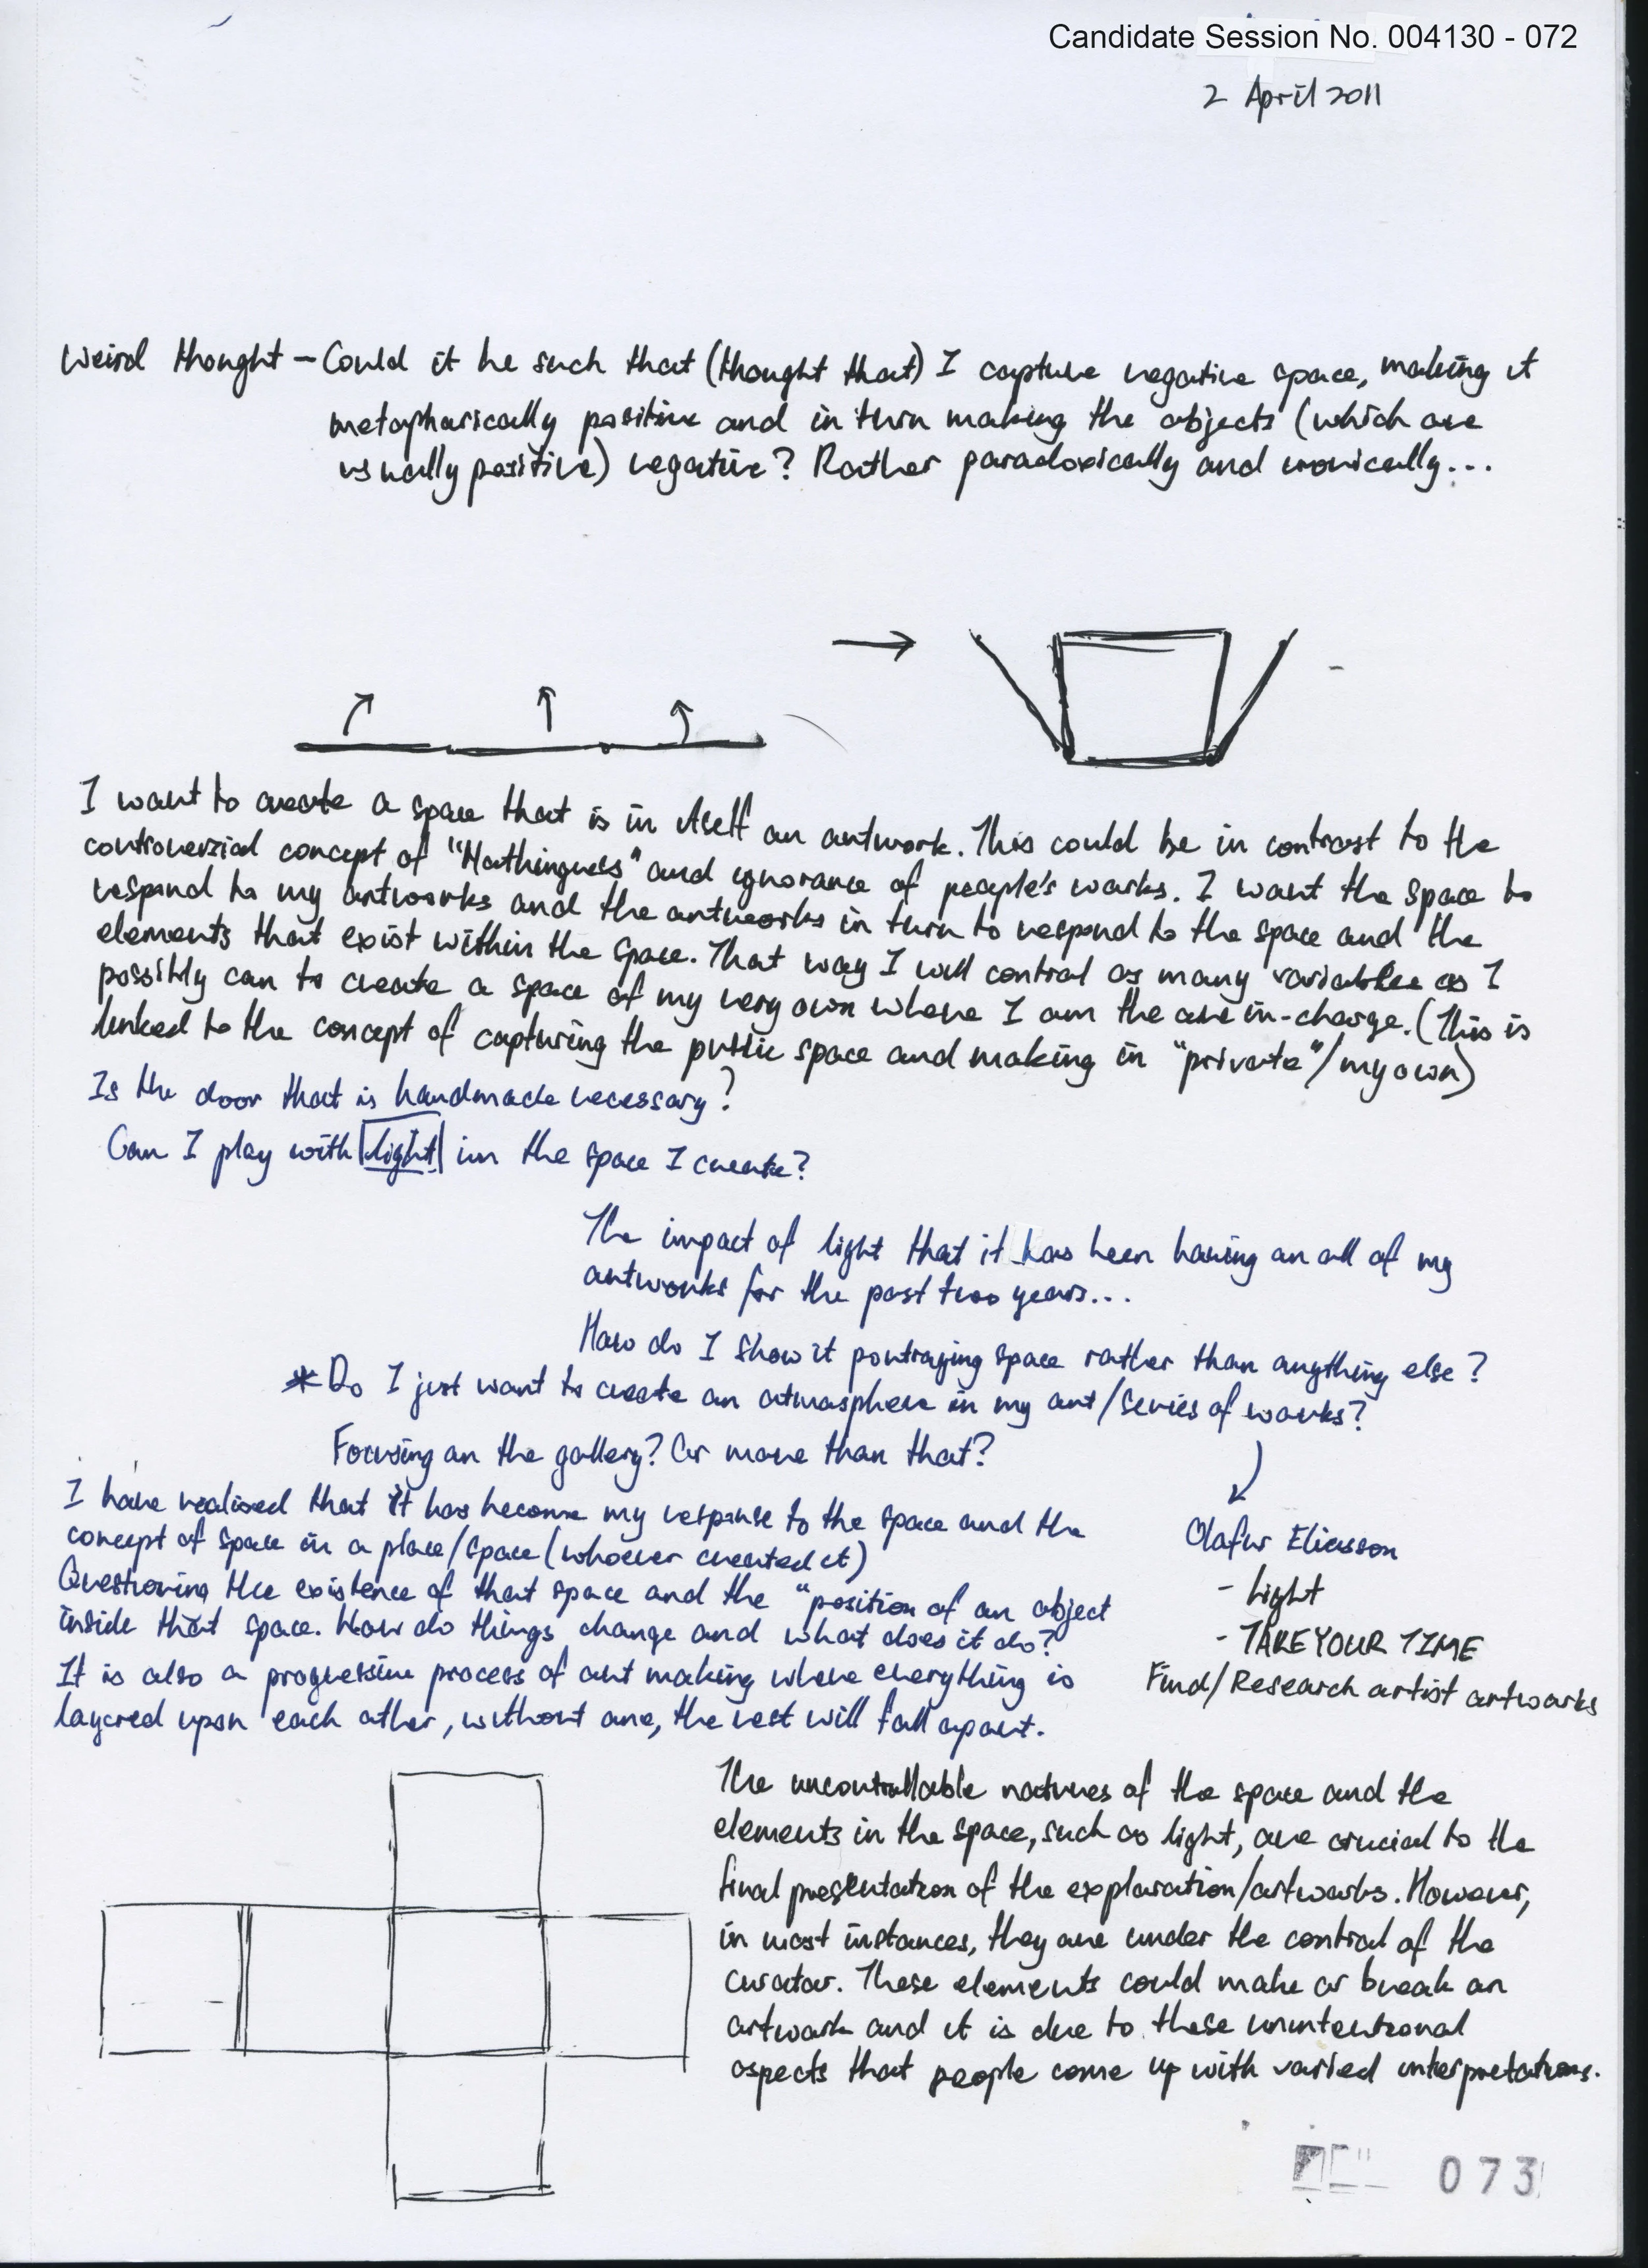 Candidate Session No. 004130 - 072
2 April 2011
Weird thought – Could it be such that (thought that) I capture negative space, making it
metaphorically positive and in turn making the objects (which are
usually positive) negative? Rather paradoxically and ironically...
I want to create a space that is in itself an artwork. This could be in contrast to the
controversial concept of "Nothingness" and ignorance of people's works. I want the space to
respond to my artworks and the artworks in turn to respond to the space and the
elements that exist within the space. That way I will control as many variables as I
possibly can to create a space of my very own where I am the one in-charge. (This is
linked to the concept of capturing the public space and making in "private"/my own)
Is the door that is handmade necessary?
Can I play with light in the space I create?
The impact of light that it has been having on all of my
artworks for the past two years...
How do I show it portraying space rather than anything else?
* Do I just want to create an atmosphere in my art/series of works?
Focusing on the gallery? Or more than that?
I have realised that it has become my response to the space and the
concept of space in a place/space (whoever created it)
Questioning the existence of that space and the "position of an object
inside that space. How do things change and what does it do?
It is also a progressive process of art making where everything is
layered upon each other, without one, the rest will fall apart.
Olafur Eliasson
- Light
- TAKE YOUR TIME
Find/Research artist artworks
The uncontrollable natures of the space and the
elements in the space, such as light, are crucial to the
final presentation of the exploration/artworks. However,
in most instances, they are under the control of the
curator. These elements could make or break an
artwork and it is due to these unintentional
aspects that people come up with varied interpretations.
073